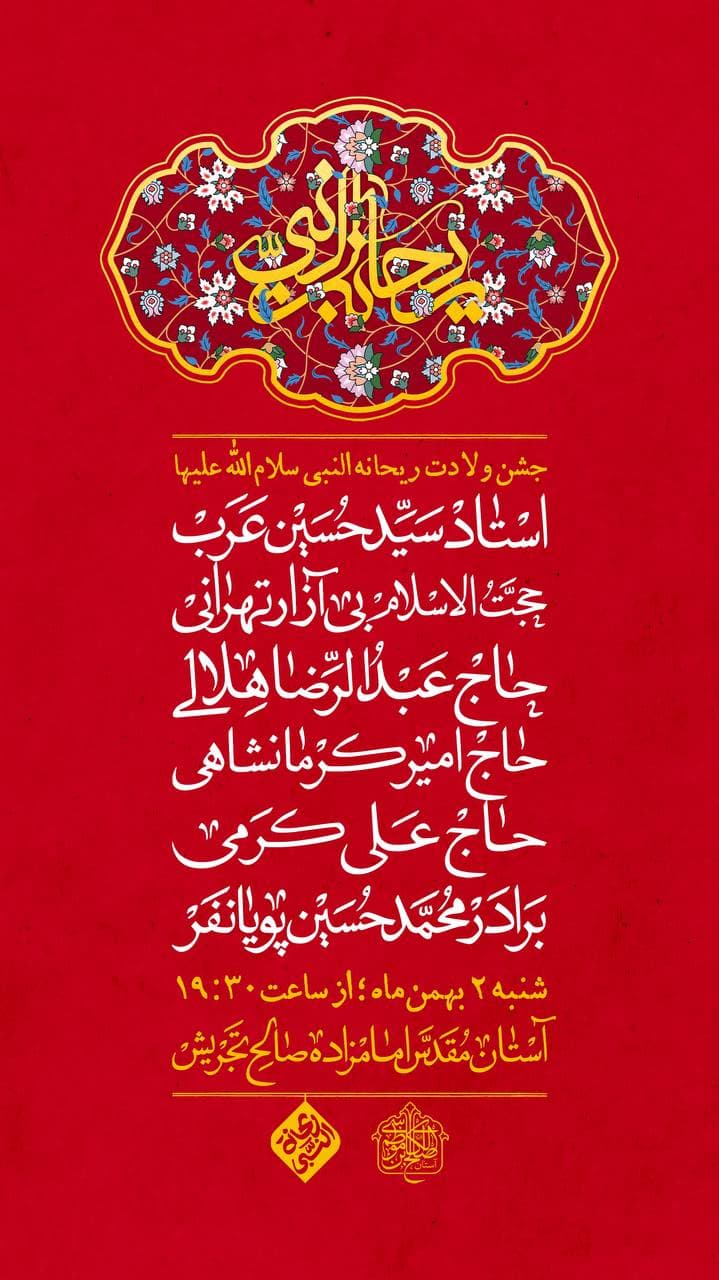 ریحانة النبی
جشن ولادت ریحانه النبی سلام الله علیها
استاد سَیِّد حُسَیْن عَرَبْ
حجتُ الاسلام بی آزار تهرانی
حاج عَبدُالرِّضا هِلالے
حاج امیر کرمانشاهی
حاج عَلی کَرَمی
بَرادَر مُحَمَّد حُسَیْن پویانفَر
شنبه ۲ بهمن ماه ؛ از ساعت ۱۹:۳۰
آستان مُقدَّس امامزاده صالح تجریش
ریحانة النبی